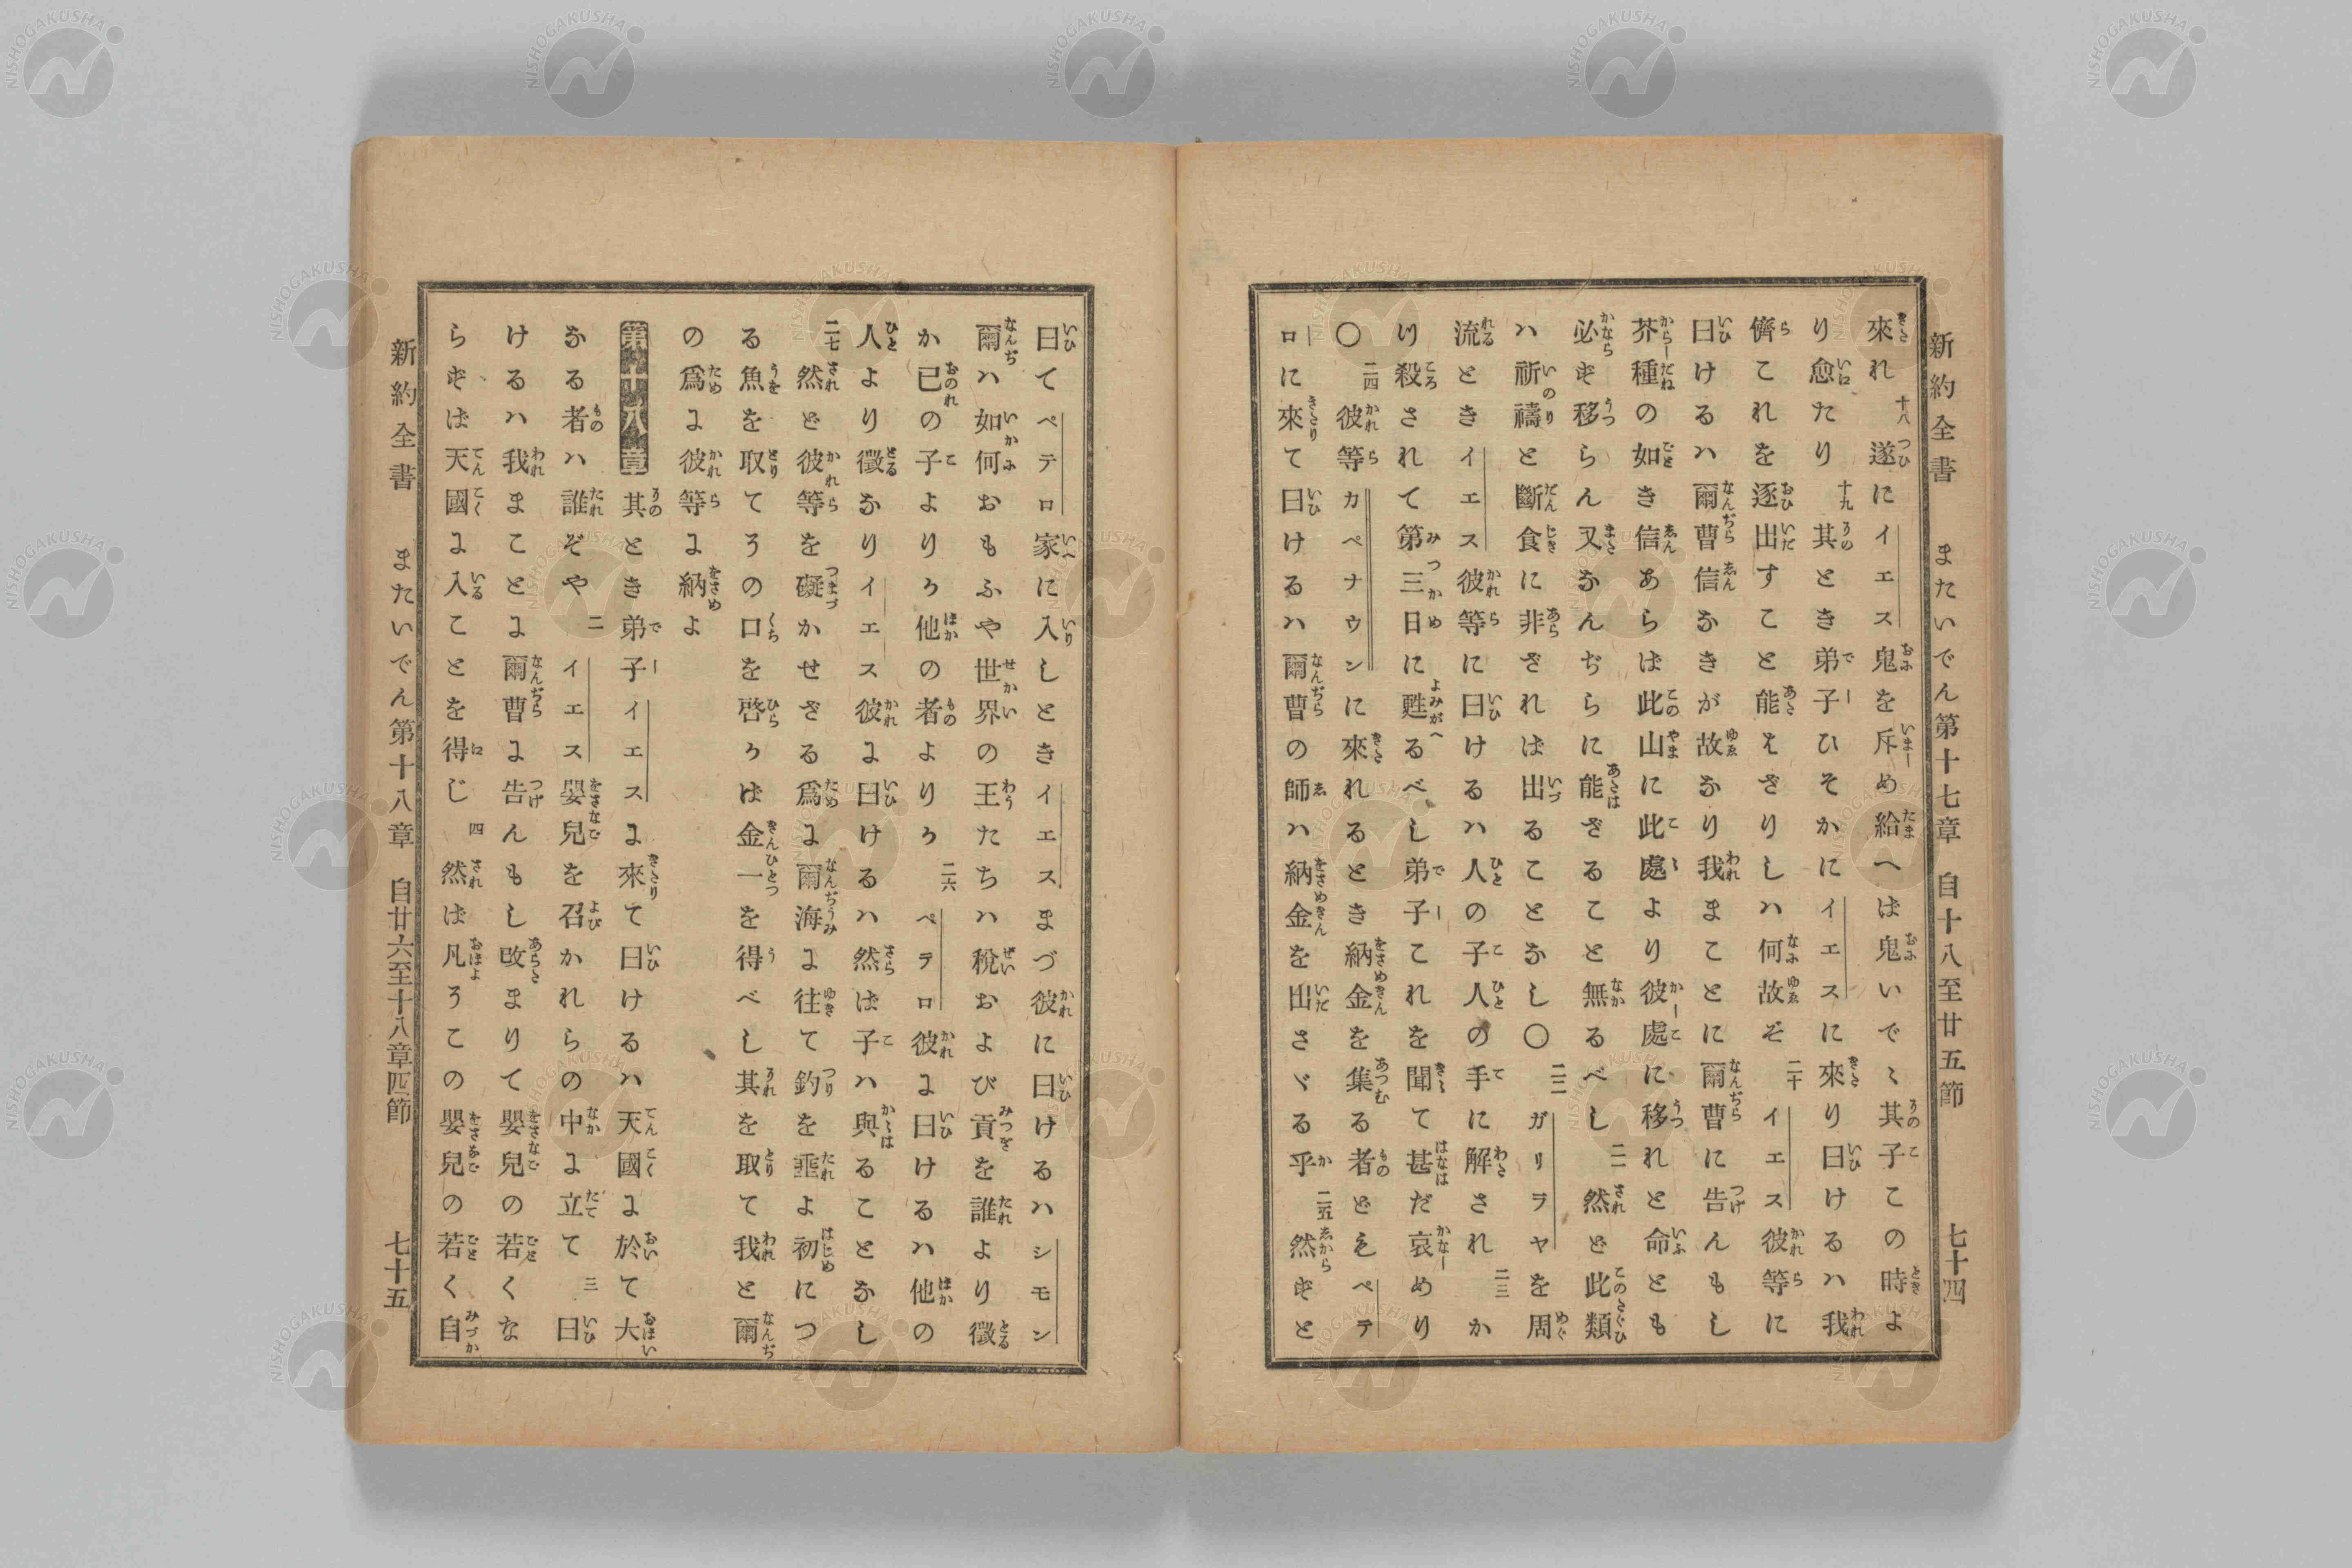 新約全書　またいでん第十七章　自十八至廿五節　七十四
來れ十八遂にイエス鬼を斥め給へば鬼いでゝ其子この時よ
り愈たり十九其とき弟子ひそかにイエスに來り曰けるハ我
儕これを逐出すこと能えざりしハ何故ぞ二十イエス彼等に
曰けるハ爾曹信なきが故なり我まことに爾曹に告んもし
芥種の如き信あらば此山に此處より彼處に移れと命とも
必ず移らん又なんぢらに能ざること無るべし二一然ど此類
ハ祈禱と斷食に非ざれば出ることなし〇二二ガリラヤを周
流ときイエス彼等に曰けるハ人の子人の手に解され二三か
り殺されて第三日に甦るべし弟子これを聞て甚だ哀めり
〇二四彼等カペナウンに來れるとき納金を集る者どもペテ
ロに來て曰けるハ爾曹の師ハ納金を出さゞる乎二五然ずと
曰てペテロ家に入しときイエスまづ彼に曰けるハシモン
爾ハ如何おもふや世界の王たちハ稅および貢を誰より徵
か己の子よりか他の者よりか二六ペテロ彼に曰けるハ他の
人より徵なりイエス彼に曰けるハ然ば子ハ與ることなし
二七然ど彼等を礙かせざる爲に爾海に往て釣を垂よ初につ
る魚を取てその口を啓かば金一を得べし其を取て我と爾
の爲に彼等に納よ
第十八章其とき弟子イエスに來て曰けるハ天國に於て大
なる者ハ誰ぞや二イエス嬰兒を召かれらの中に立て三曰
けるハ我まことに爾曹に告んもし改まりて嬰兒の若くな
らずば天國に入ことを得じ四然ば凡そこの嬰兒の若く自
新約全書　またいでん第十八章　自廿六至十八章四節　七十五
NISHOGAKUSHA